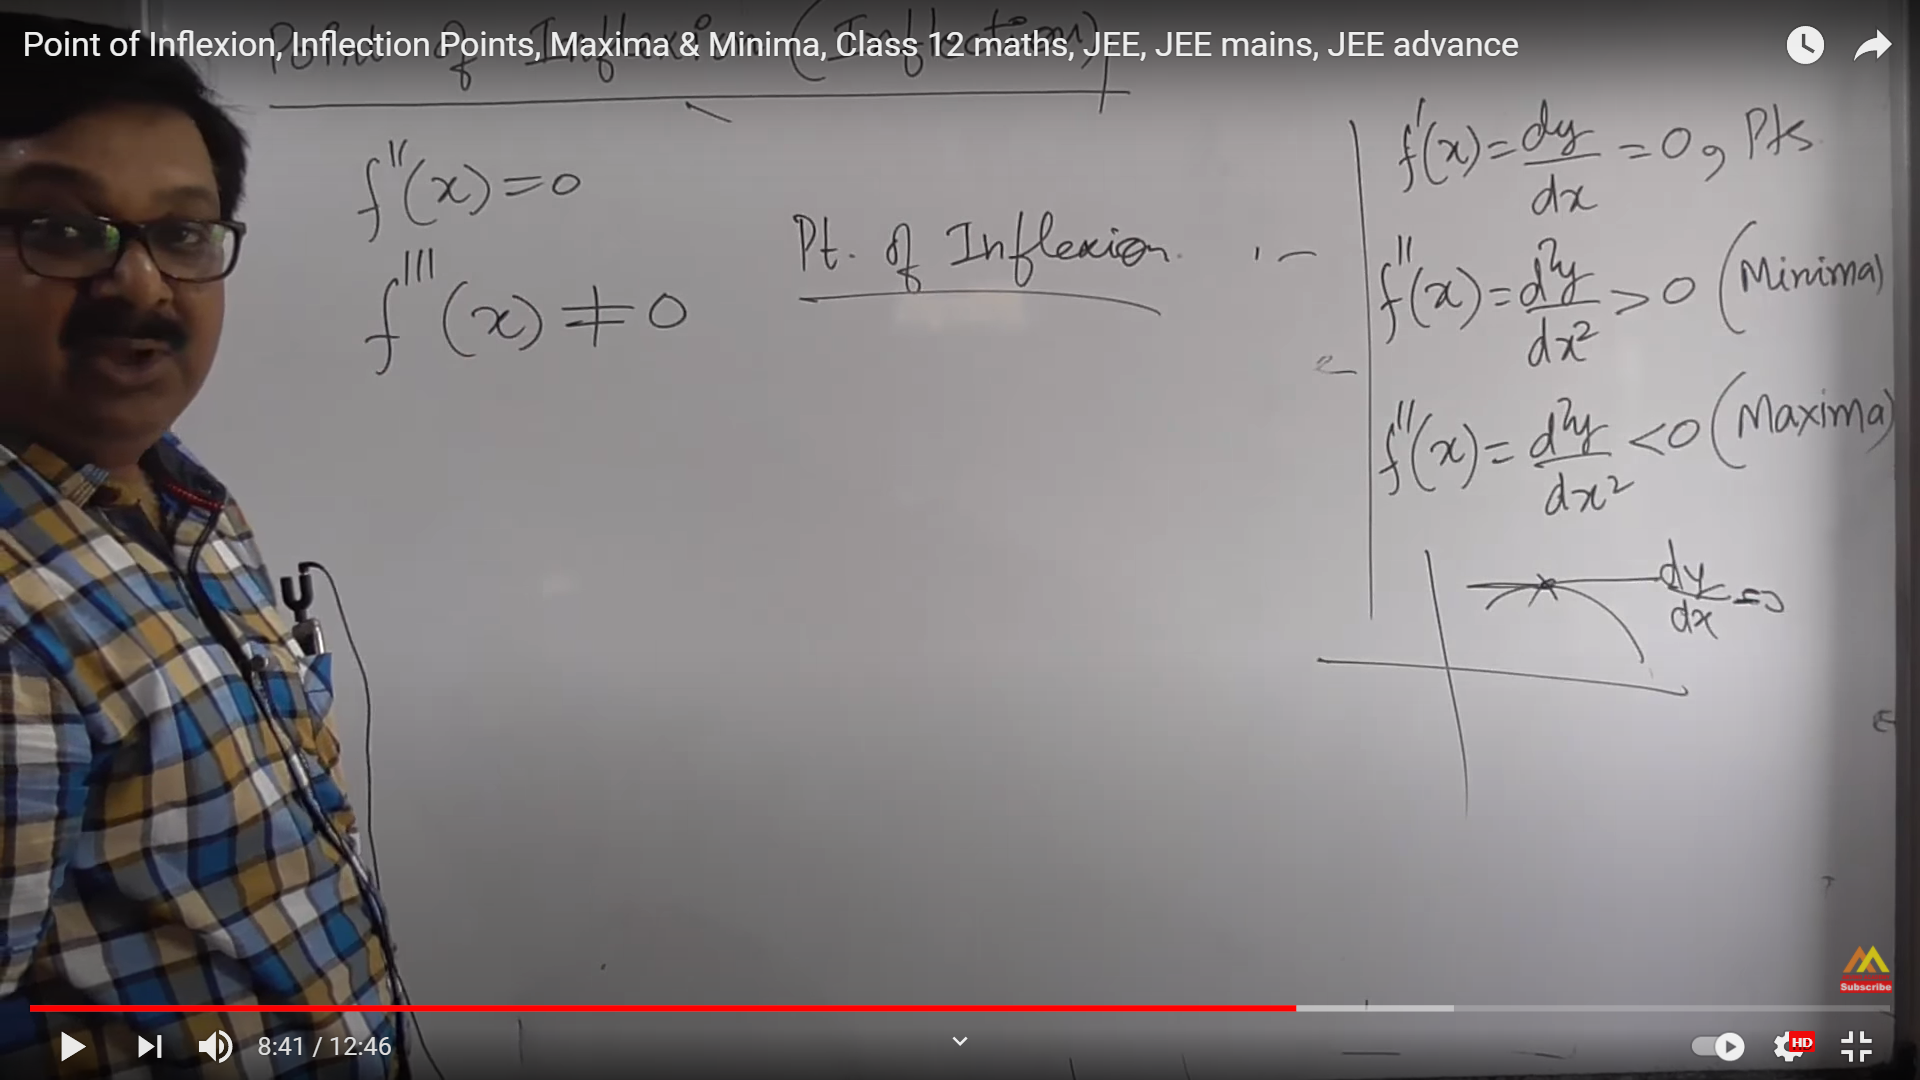 Point of Inflexion, Inflection Points, Maxima & Minima, Class 12 maths, JEE, JEE mains, JEE advance
Point of Inflexion (Inflection)
f''(x)=0
f'''(x)≠0
Pt. of Inflexion
f'(x)=dy/dx=0, Pts
f''(x)=d²y/dx²>0 (Minima)
f''(x)=d²y/dx²<0 (Maxima)
dy/dx=0
Subscribe
8:41 / 12:46
HD